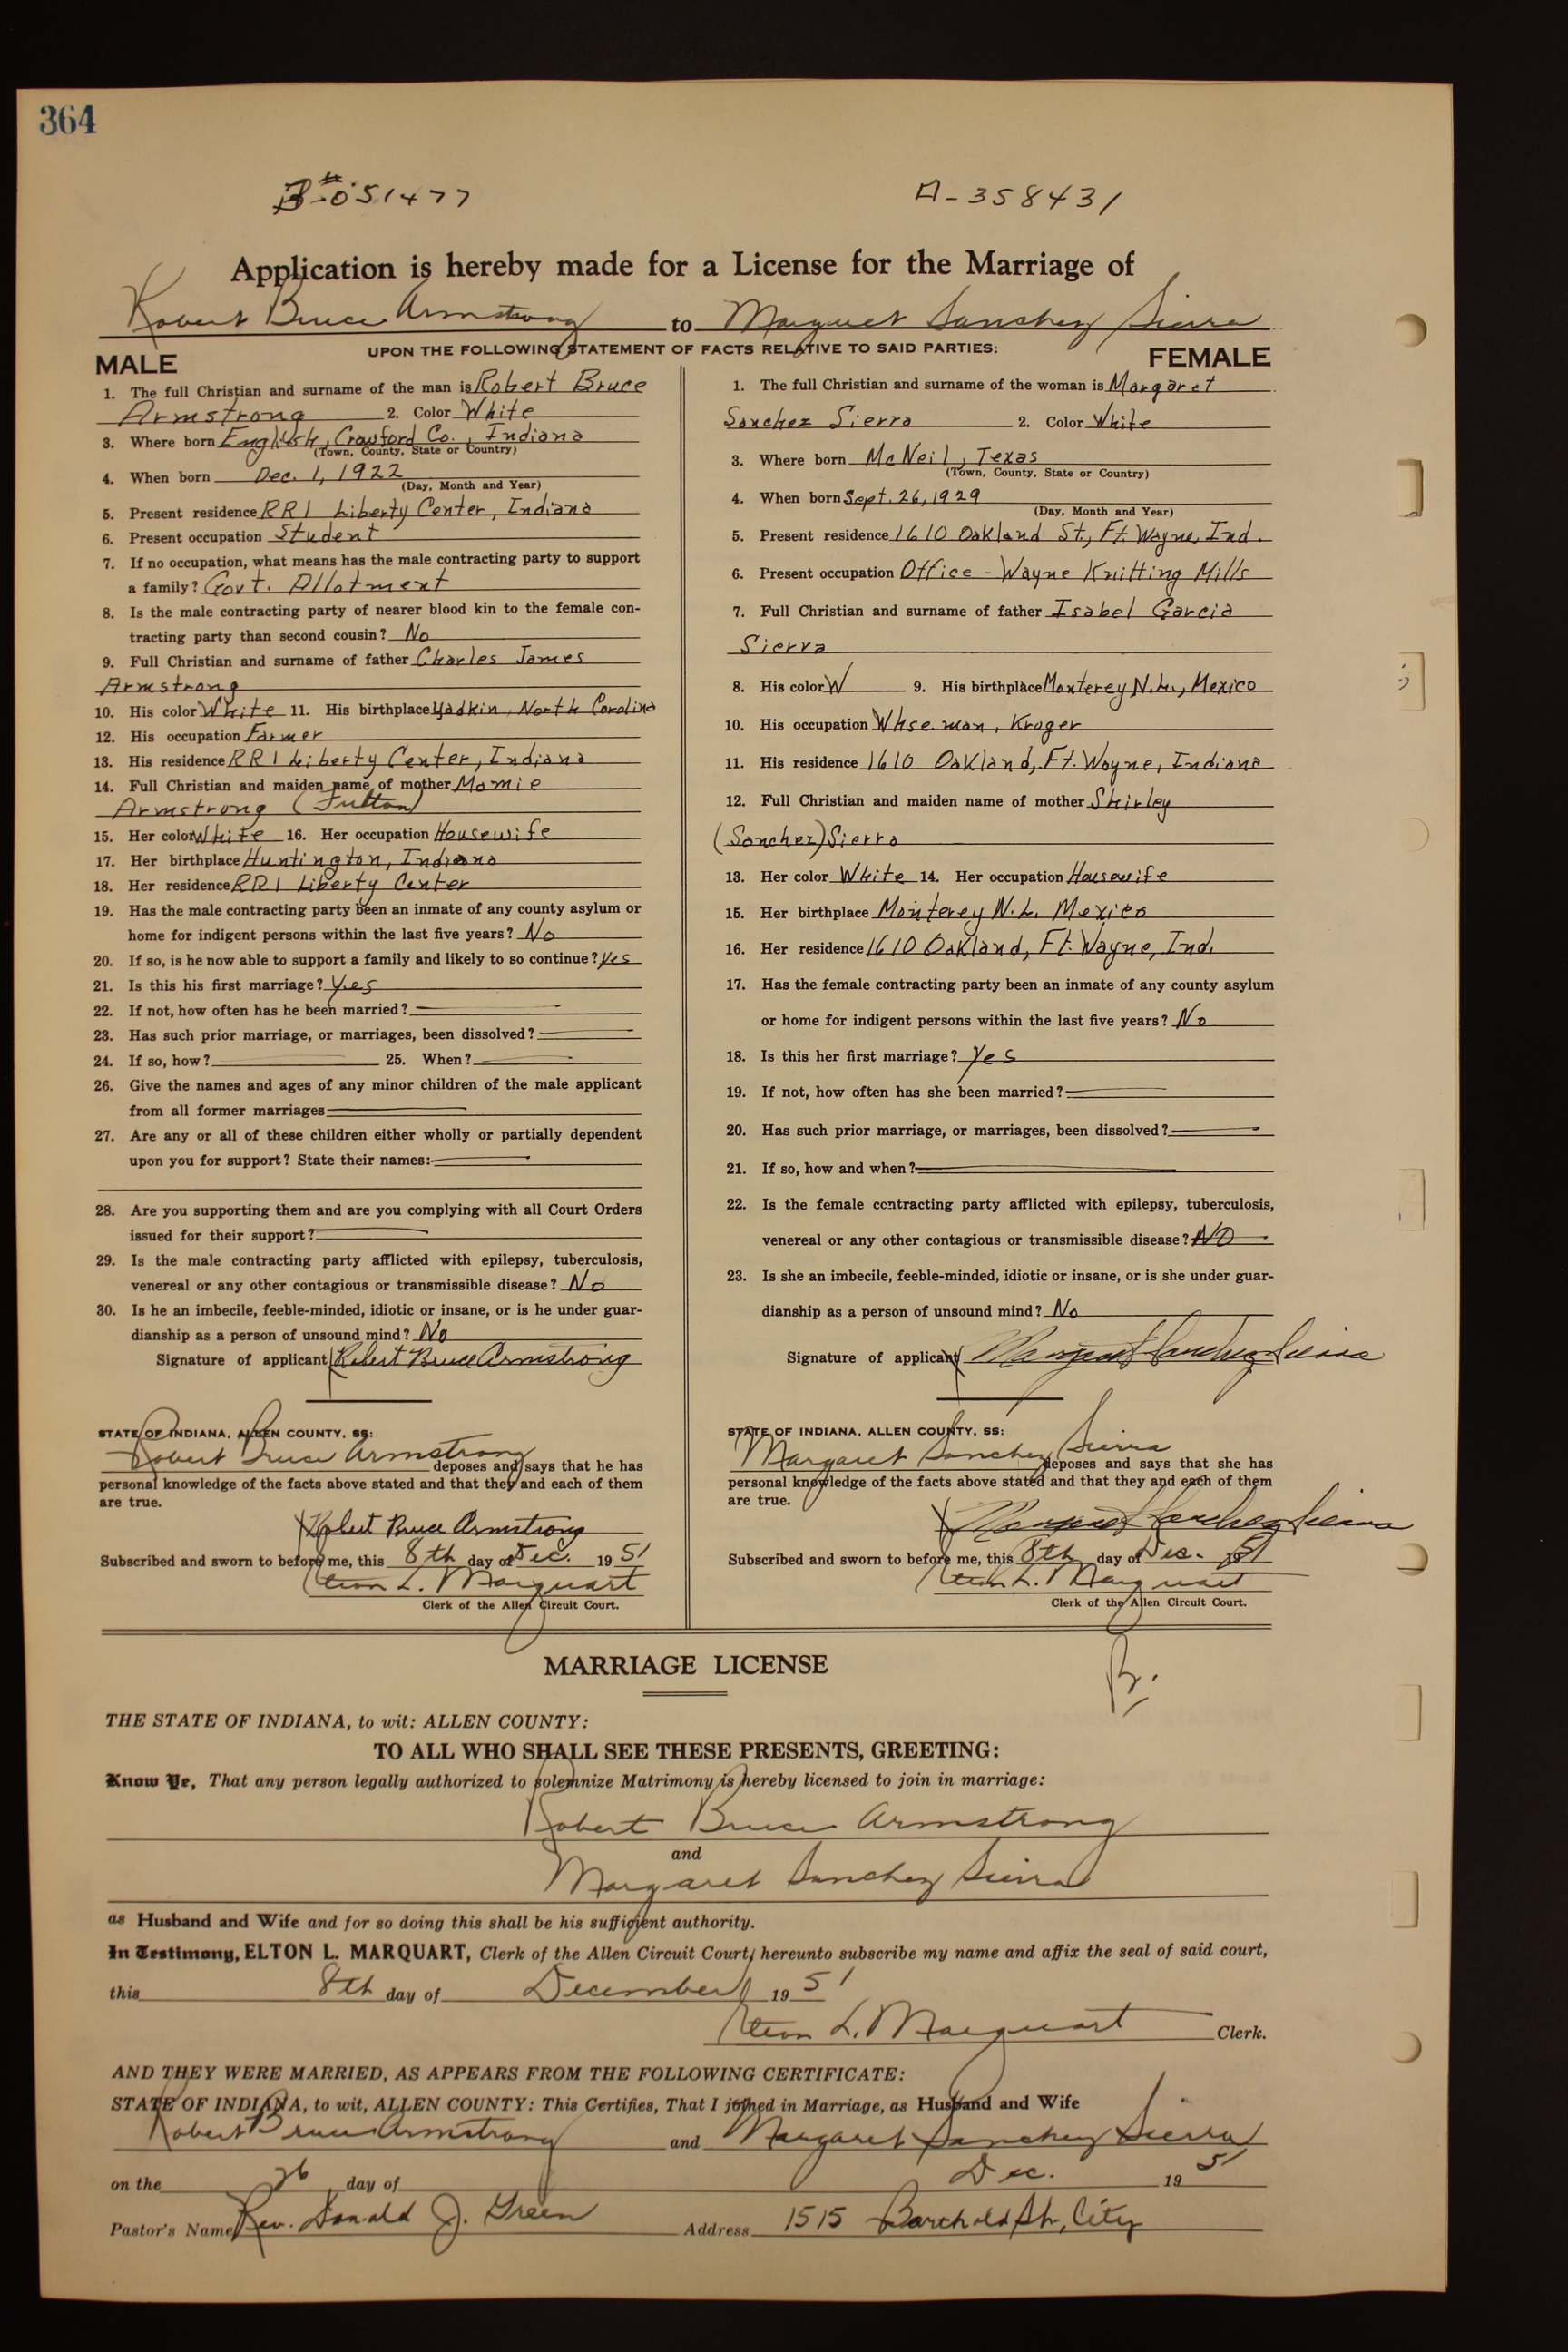 364
B-051477
A-358431
Application is hereby made for a License for the Marriage of
Robert Bruce Armstrong to Margaret Sanchez Sierra
UPON THE FOLLOWING STATEMENT OF FACTS RELATIVE TO SAID PARTIES:
MALE
1. The full Christian and surname of the man is Robert Bruce
Armstrong 2. Color White
3. Where born English, Crawford Co., Indiana
(Town, County, State or Country)
4. When born Dec. 1, 1922
(Day, Month and Year)
5. Present residence RR1 Liberty Center, Indiana
6. Present occupation Student
7. If no occupation, what means has the male contracting party to support
a family? Govt. Allotment
8. Is the male contracting party of nearer blood kin to the female con-
tracting party than second cousin? No
9. Full Christian and surname of father Charles James
Armstrong
10. His color White 11. His birthplace Yadkin, North Carolina
12. His occupation Farmer
13. His residence RR1 Liberty Center, Indiana
14. Full Christian and maiden name of mother Mamie
Armstrong (Fulton)
15. Her color White 16. Her occupation Housewife
17. Her birthplace Huntington, Indiana
18. Her residence RR1 Liberty Center
19. Has the male contracting party been an inmate of any county asylum or
home for indigent persons within the last five years? No
20. If so, is he now able to support a family and likely to so continue? Yes
21. Is this his first marriage? Yes
22. If not, how often has he been married?
23. Has such prior marriage, or marriages, been dissolved?
24. If so, how? 25. When?
26. Give the names and ages of any minor children of the male applicant
from all former marriages
27. Are any or all of these children either wholly or partially dependent
upon you for support? State their names:
28. Are you supporting them and are you complying with all Court Orders
issued for their support?
29. Is the male contracting party afflicted with epilepsy, tuberculosis,
venereal or any other contagious or transmissible disease? No
30. Is he an imbecile, feeble-minded, idiotic or insane, or is he under guar-
dianship as a person of unsound mind? No
Signature of applicant Robert Bruce Armstrong
STATE OF INDIANA, ALLEN COUNTY, SS:
Robert Bruce Armstrong deposes and says that he has
personal knowledge of the facts above stated and that they and each of them
are true.
Robert Bruce Armstrong
Subscribed and sworn to before me, this 8th day of Dec. 1951
Elton L. Marquart
Clerk of the Allen Circuit Court.
FEMALE
1. The full Christian and surname of the woman is Margaret
Sanchez Sierra 2. Color White
3. Where born McNeil, Texas
(Town, County, State or Country)
4. When born Sept. 26, 1929
(Day, Month and Year)
5. Present residence 1610 Oakland St., Ft. Wayne, Ind.
6. Present occupation Office - Wayne Knitting Mills
7. Full Christian and surname of father Isabel Garcia
Sierra
8. His color W 9. His birthplace Monterey N.L., Mexico
10. His occupation Whse. man, Kroger
11. His residence 1610 Oakland, Ft. Wayne, Indiana
12. Full Christian and maiden name of mother Shirley
(Sanchez) Sierra
13. Her color White 14. Her occupation Housewife
15. Her birthplace Monterey N.L. Mexico
16. Her residence 1610 Oakland, Ft. Wayne, Ind.
17. Has the female contracting party been an inmate of any county asylum
or home for indigent persons within the last five years? No
18. Is this her first marriage? Yes
19. If not, how often has she been married?
20. Has such prior marriage, or marriages, been dissolved?
21. If so, how and when?
22. Is the female contracting party afflicted with epilepsy, tuberculosis,
venereal or any other contagious or transmissible disease? NO
23. Is she an imbecile, feeble-minded, idiotic or insane, or is she under guar-
dianship as a person of unsound mind? No
Signature of applicant Margaret Sanchez Sierra
STATE OF INDIANA, ALLEN COUNTY, SS:
Margaret Sanchez Sierra deposes and says that she has
personal knowledge of the facts above stated and that they and each of them
are true.
Margaret Sanchez Sierra
Subscribed and sworn to before me, this 8th day of Dec. 51
Elton L. Marquart
Clerk of the Allen Circuit Court.
B.
MARRIAGE LICENSE
THE STATE OF INDIANA, to wit: ALLEN COUNTY:
TO ALL WHO SHALL SEE THESE PRESENTS, GREETING:
Know Ye, That any person legally authorized to solemnize Matrimony is hereby licensed to join in marriage:
Robert Bruce Armstrong
and
Margaret Sanchez Sierra
as Husband and Wife and for so doing this shall be his sufficient authority.
In Testimony, ELTON L. MARQUART, Clerk of the Allen Circuit Court, hereunto subscribe my name and affix the seal of said court,
this 8th day of December 1951
Elton L. Marquart Clerk.
AND THEY WERE MARRIED, AS APPEARS FROM THE FOLLOWING CERTIFICATE:
STATE OF INDIANA, to wit, ALLEN COUNTY: This Certifies, That I joined in Marriage, as Husband and Wife
Robert Bruce Armstrong and Margaret Sanchez Sierra
on the 26 day of Dec. 1951
Pastor's Name Rev. Donald J. Green Address 1515 Barthold St., City